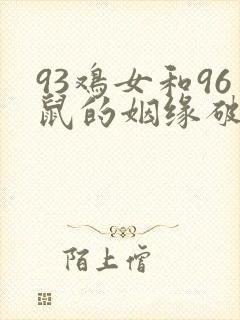 93鸡女和96
鼠的姻缘破
陌上僧